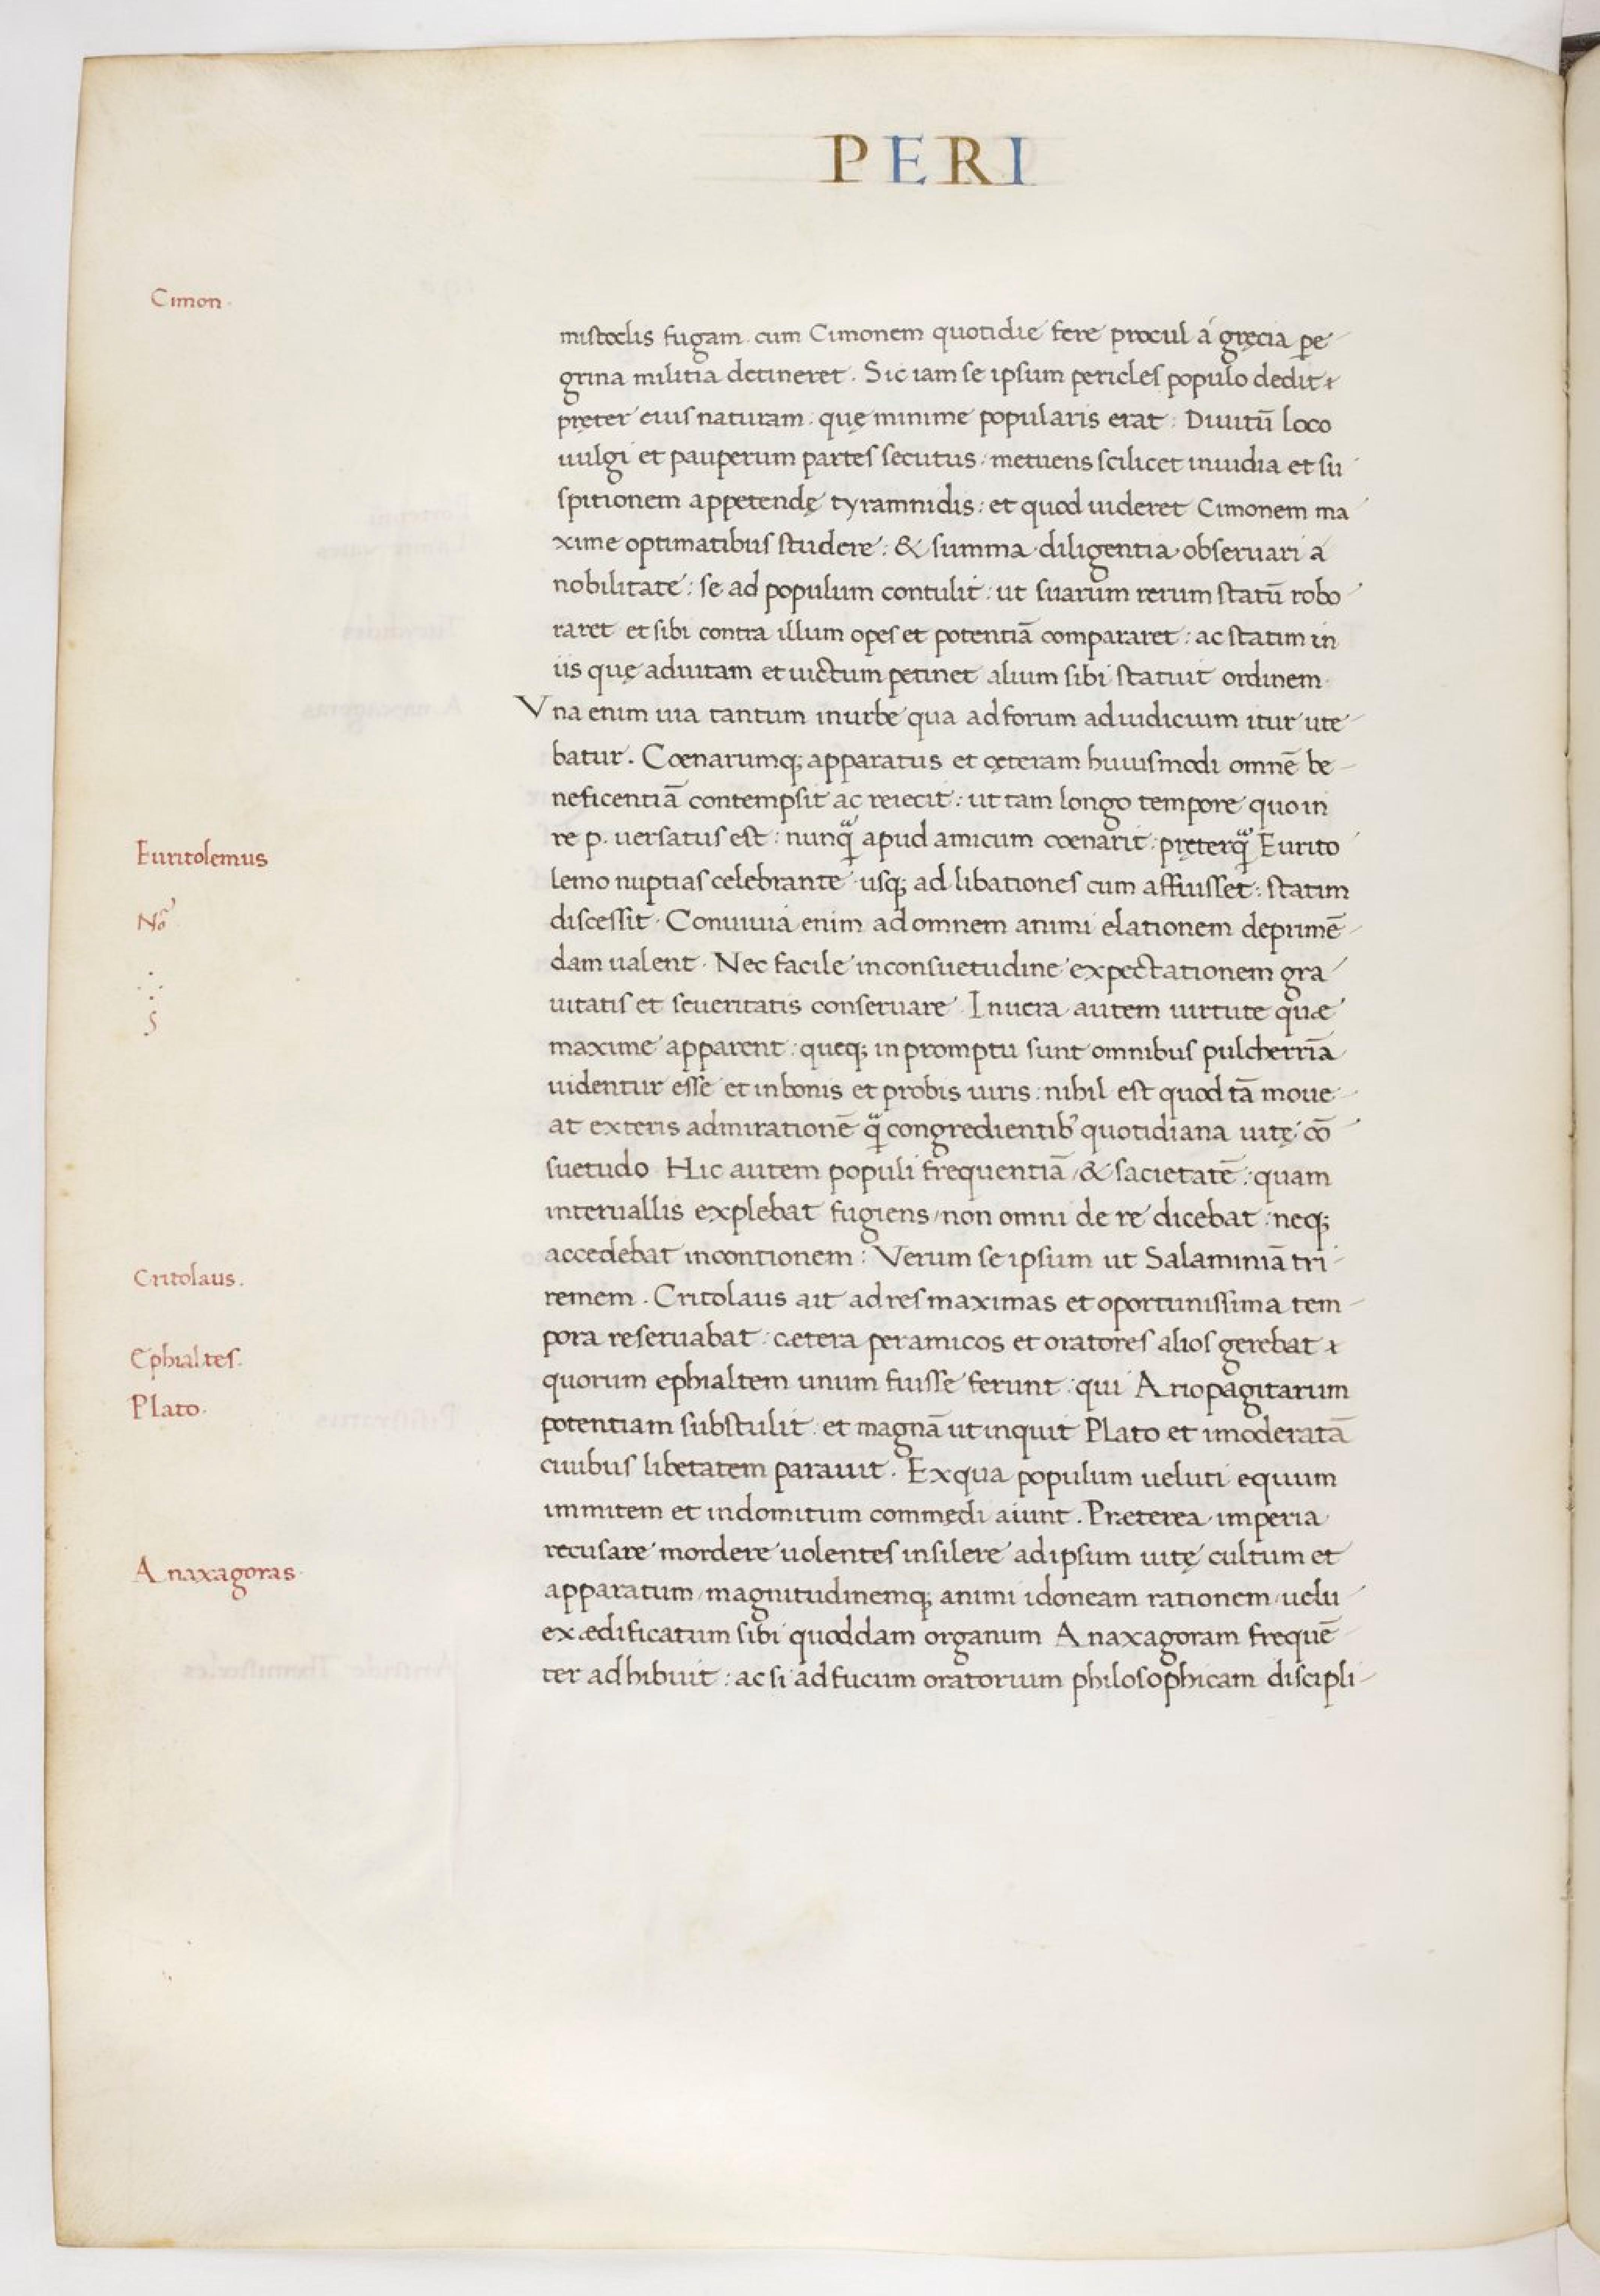 PERI
Cimon.
mistoclis fugam. cum Cimonem quotidie fere procul á gręcia pe
grina militia detineret. Sic iam se ipsum pericles populo dedit
pręter eius naturam. quę minime popularis erat: Diuitū loco
uulgi et pauperum partes secutus: metuens scilicet inuidia et su
spitionem appetendę tyramnidis: et quod uideret Cimonem ma
xime optimatibus studere: & summa diligentia obseruari á
nobilitate: se ad populum contulit: ut suarum rerum statū robo
raret et sibi contra illum opes et potentiā compararet: ac statim in
iis quę ad uitam et uictum petinet alium sibi statuit ordinem.
Vna enim uia tantum in urbe qua ad forum ad iudicium itur ute
batur. Coenarumq; apparatus et cęteram huiusmodi omnē be
neficentiā contempsit ac reiecit: ut tam longo tempore quo in
re p. uersatus est: nunq̄ apud amicum coenarit: pręterq̄ Eurito
Euritolemus
lemo nuptias celebrante usq; ad libationes cum affuisset: statim
discessit. Conuiuia enim ad omnem animi elationem deprimē
No
dam ualent. Nec facile in consuetudine expectationem gra
uitatis et seueritatis conseruare. In uera autem uirtute quæ
maxime apparent: queq; in promptu sunt omnibus pulcherria
uidentur esse et in bonis et probis uiris: nihil est quod tā moue
at exteris admirationē q̄ congredientib' quotidiana uitę cō
suetudo. Hic autem populi frequentiā / & sacietatē: quam
interuallis explebat fugiens / non omni de re dicebat: neq;
accedebat in contionem: Verum se ipsum ut Salaminiā tri
Critolaus.
remem. Critolaus ait ad res maximas et oportunissima tem
pora reseruabat: cætera per amicos et oratores alios gerebat
Ephialtes.
quorum ephialtem unum fuisse ferunt: qui Ariopagitarum
Plato.
potentiam substulit: et magnā ut inquit Plato et imoderatā
ciuibus libetatem parauit. Ex qua populum ueluti equum
immitem et indomitum commędi aiunt. Præterea imperia
recusare mordere uolentes insilere ad ipsum uitę cultum et
Anaxagoras.
apparatum / magnitudinemq; animi idoneam rationem / uelu
exædificatum sibi quoddam organum Anaxagoram frequē
ter adhibuit: ac si ad fucum oratorium philosophicam discipli